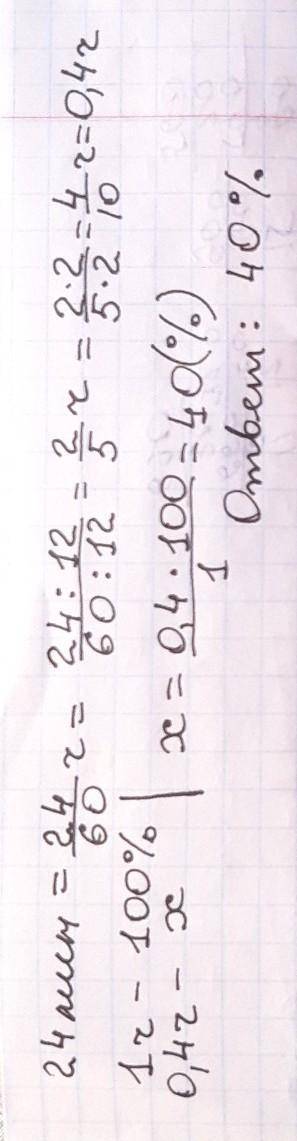 24 мин = 24/60 ч = 24:12/60:12 = 2/5 ч = 2·2/5·2 = 4/10 ч = 0,4ч
1ч – 100% | x = 0,4·100/1 = 40(%)
0,4ч – x
Ответ: 40%